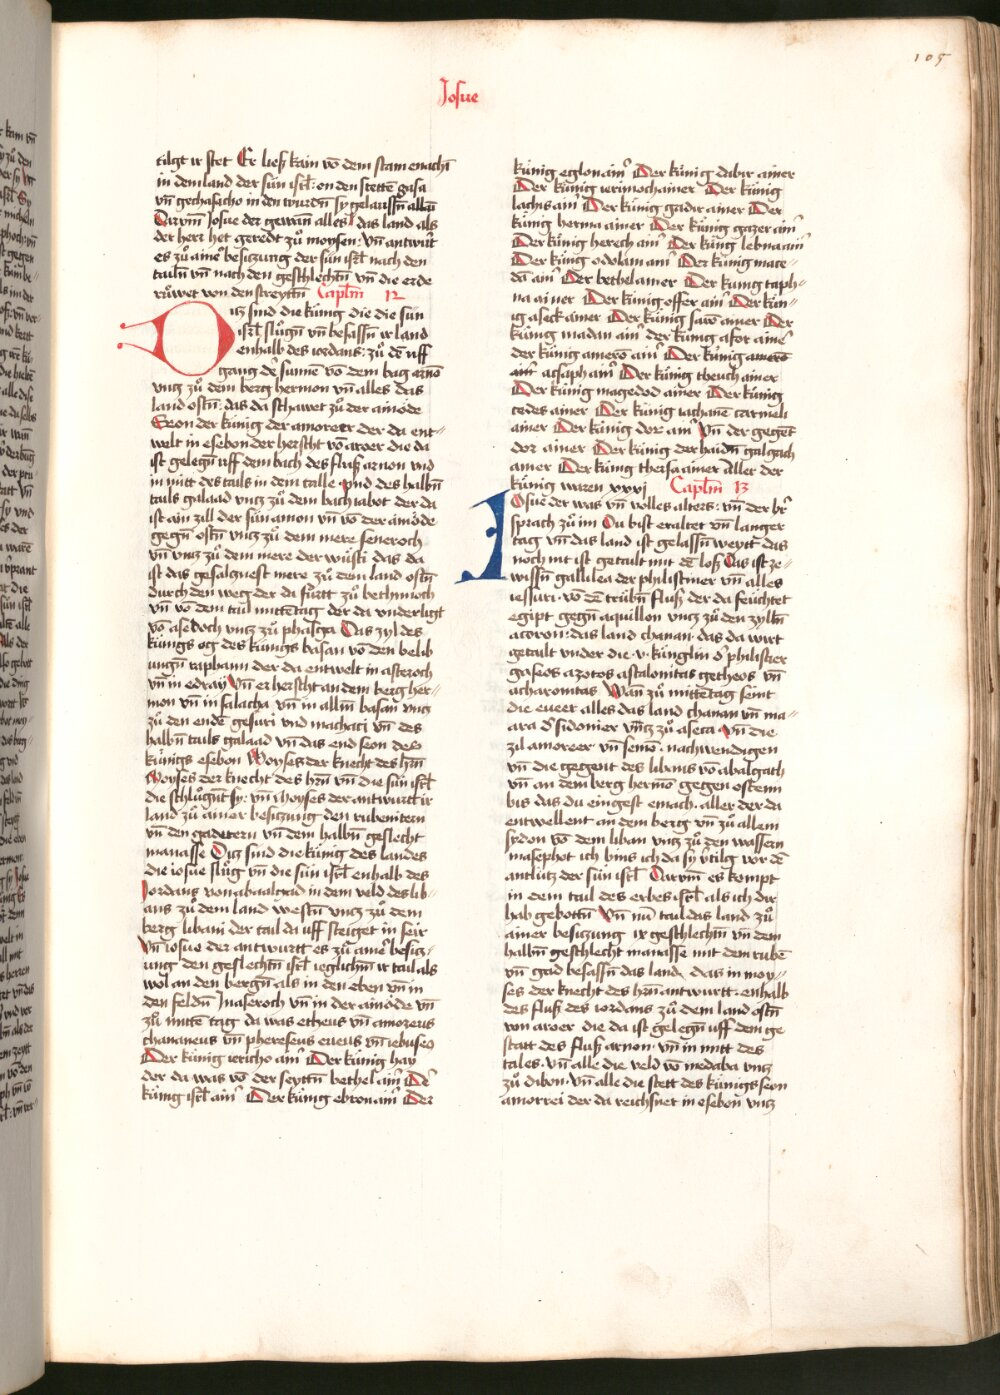 105
Josue
tilgt ir stet Er ließ kain vō dem stam enachī
in dem land der sün isrl̄ : on den stettē gasa
vn̄ gechafacho in den wurdn̄ sy gelaussn̄ allaī
Darvm̄ Josue der gewan alles das land als
der herr het geredt zů moysen : vn̄ antwūrt
es zů ainē besitzung der sün isrl̄ nach den
tailn̄ vn̄ nach den geschlechtn̄ vn̄ die erde
růwet von den streyttn̄ Caplm̄ 12
Ditz sind die künig die die sün
isrl̄ slůgn̄ vn̄ besassn̄ ir land
enhalb des iordans : zů dē uff
gang der sunnē vō dem bach arnō
vntz zů dem berg hermon vn̄ alles das
land ostn̄ : das da schawet zů der ainöde
Seon der künig der amoreer der da ent=
welt in esebon der herscht vō aroer die da
ist gelegn̄ uff dem bach des fluß arnon vnd
in mitt des tails in dem talle vnd des halbn̄
tails galaad vntz zů dem bach iabot der da
ist ain zill der sün amon vn̄ vō der ainöde
gegn̄ ostn̄ vntz zů dem mere seneroch
vn̄ vntz zů dem mere der wüsti das da
ist das gesalgnest mere zů dem land ostn̄
durch den weg der da fürtt zů bethmoch
vn̄ vō dem tail mittētag der da vnderligt
vō asedoch vntz zů phascha Das zyl des
künigs og des künigs basan vō den belib
ungn̄ raphaim der da entwelt in asteroch
vn̄ in edray vn̄ er herscht an dem berg her=
mon vn̄ in salacha vn̄ in allm̄ basan vntz
zů den endē gesuri vnd machati vn̄ des
halbn̄ tails galaad vn̄ das end seon des
künigs esebon Moyses der knecht des hr̄n
Moyses der knecht des hr̄n vn̄ die sün isrl̄
die schlůgnt sy : vn̄ Moyses der antwurtt ir
land zů ainer besitzung den rubenitern
vn̄ den gaditern vn̄ dem halbn̄ geslecht
manasse Ditz sind die künig des landes
die iosue slůg vn̄ die sün isrl̄ enhalb des
Jordans von abaalgad in dem veld des lib=
ans zů dem land westn̄ vntz zů dem
berg libani der tail da uff steiget in seir
vn̄ iosue der antwurtt es zů ainē besitz=
ung den geslechtn̄ isrl̄ ieglichm̄ ir tail als
wol an den bergn̄ als in den eben vn̄ in
den feldn̄ Jn aseroch vn̄ in der ainöde vn̄
zů mitte tag da was etheus vn̄ amoreus
chananeus vn̄ phereseus eueus vn̄ iebuseus
Der künig iericho ainr̄ Der künig hay
der da was vō der seyttn̄ bethel ainr̄ Der
künig isrl̄ ainr̄ Der künig ebron ainr̄ Der
künig eglon ainr̄ Der künig dabir ainer
Der künig ierimoch ainer Der künig
lachis ainr̄ Der künig gadir ainer Der
künig herma ainer Der künig gazer ainr̄
Der künig herech ainr̄ Der küng lebna ainr̄
Der künig odolam ainr̄ Der künig mace=
da ainr̄ Der bethel ainer Der kung taph=
na ainer Der künig offer ainr̄ Der kün=
ig aseck ainer Der künig saro ainer Der
künig madan ainr̄ der künig asor ainē
der künig amero ainr̄ Der künig amero
ainr̄ acsaph ainr̄ Der künig theuch ainer
Der künig magedod ainer Der künig
cedes ainer Der künig iachanē carmeli
ainer Der künig dor ainr̄ vn̄ der gegēt
dor ainer Der künig der haidn̄ galgach
ainer Der künig thersa ainer aller der
künig waren xxxj Caplm̄ 13
Josue der was vn̄ volles alters : vn̄ der hr̄
sprach zů im Du bist eraltet vn̄ langer
tag vn̄ das land ist gelassn̄ weytt das
noch nit ist getailt mit dē loß Das ist ze=
wissn̄ gallilea der philistiner vn̄ alles
iessuri · vō dē trübn̄ fluß der da feüchtet
egipt gegn̄ aquillon vntz zů den zylln̄
acoron : das land chanan · das da wirt
getailt vnder die · v · künglin d' philistier
gaseos azotos ascalonitas getheos vn̄
acharonitas Wan zů mittētag seint
die eueer alles das land chanan vn̄ ma=
ara d' sidonier vntz zů aseca vn̄ die
zil amoreer vn̄ seinē nachwendigen
vn̄ die gegent des libans vō abalgath
vn̄ an dem berg hermō gegen ostenn
bis das du eingest emach · aller der da
entwellent an dem berg vn̄ zů allem
sydon vō dem liban vntz zů den wassern
masephot ich bins ich da sy v'tilg vor dē
antlütz der sün isrl̄ Darvm̄ es kompt
in dem tail des erbes isrl̄ als ich dir
hab gebottn̄ vn̄ nū tail das land zů
ainer besitzung ix geschlechtn̄ vn̄ dem
halbn̄ geschlecht manasse mit dem rubē
vn̄ gad besassn̄ das land das in moy=
ses der knecht des hr̄n antwurtt · enhalb
des fluß des iordans zů dem land ostn̄
von aroer die da ist gelegn̄ uff dem ge
statt des fluß arnon · vn̄ in mitt des
tales · vn̄ alle die veld vō medaba vntz
zů dibon · vn̄ alle die stett des künigs seon
amorrei der da reichsnet in esebon̄ vntz